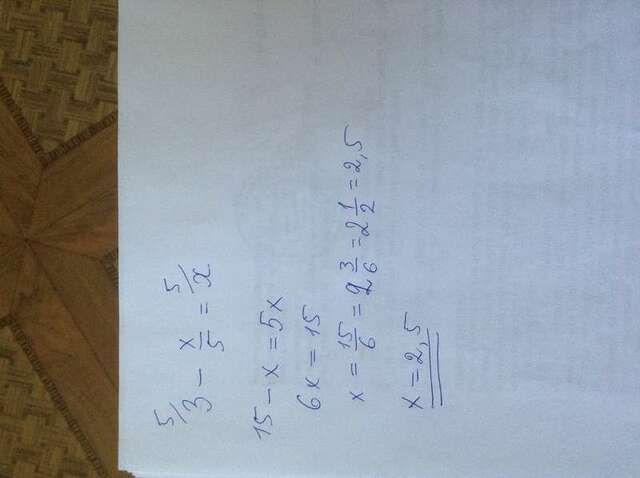 ⁵/3 − x/5 = ⁵/x
15 − x = 5x
6x = 15
x = 15/6 = 2 3/6 = 2 1/2 = 2,5
x = 2,5